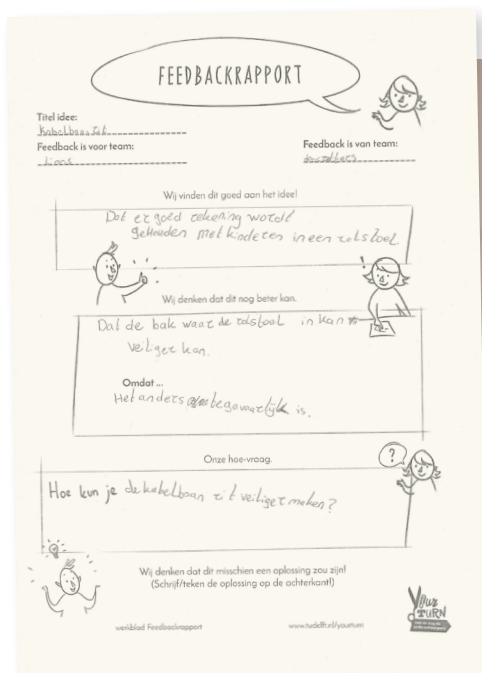 FEEDBACKRAPPORT
Titel idee:
Feedback is voor team:
Lions
Feedback is van team:
Wij vinden dit goed aan het idee!
Dat er goed rekening wordt
gehouden met kinderen in een rolstoel.
Wij denken dat dit nog beter kan.
Dat de bak waar de rolstool in kan
veiliger kan.
Omdat ...
Het anders te gevaarlijk is.
Onze hoe-vraag.
?
Hoe kun je de kabelbaan zit veiliger maken?
Wij denken dat dit misschien een oplossing zou zijn!
(Schrijf/teken de oplossing op de achterkant!)
YOUR
TURN
werkblad Feedbackrapport
www.tudelft.nl/yourturn